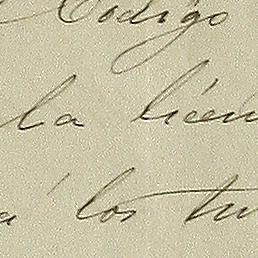 Código
la licen
á los tu